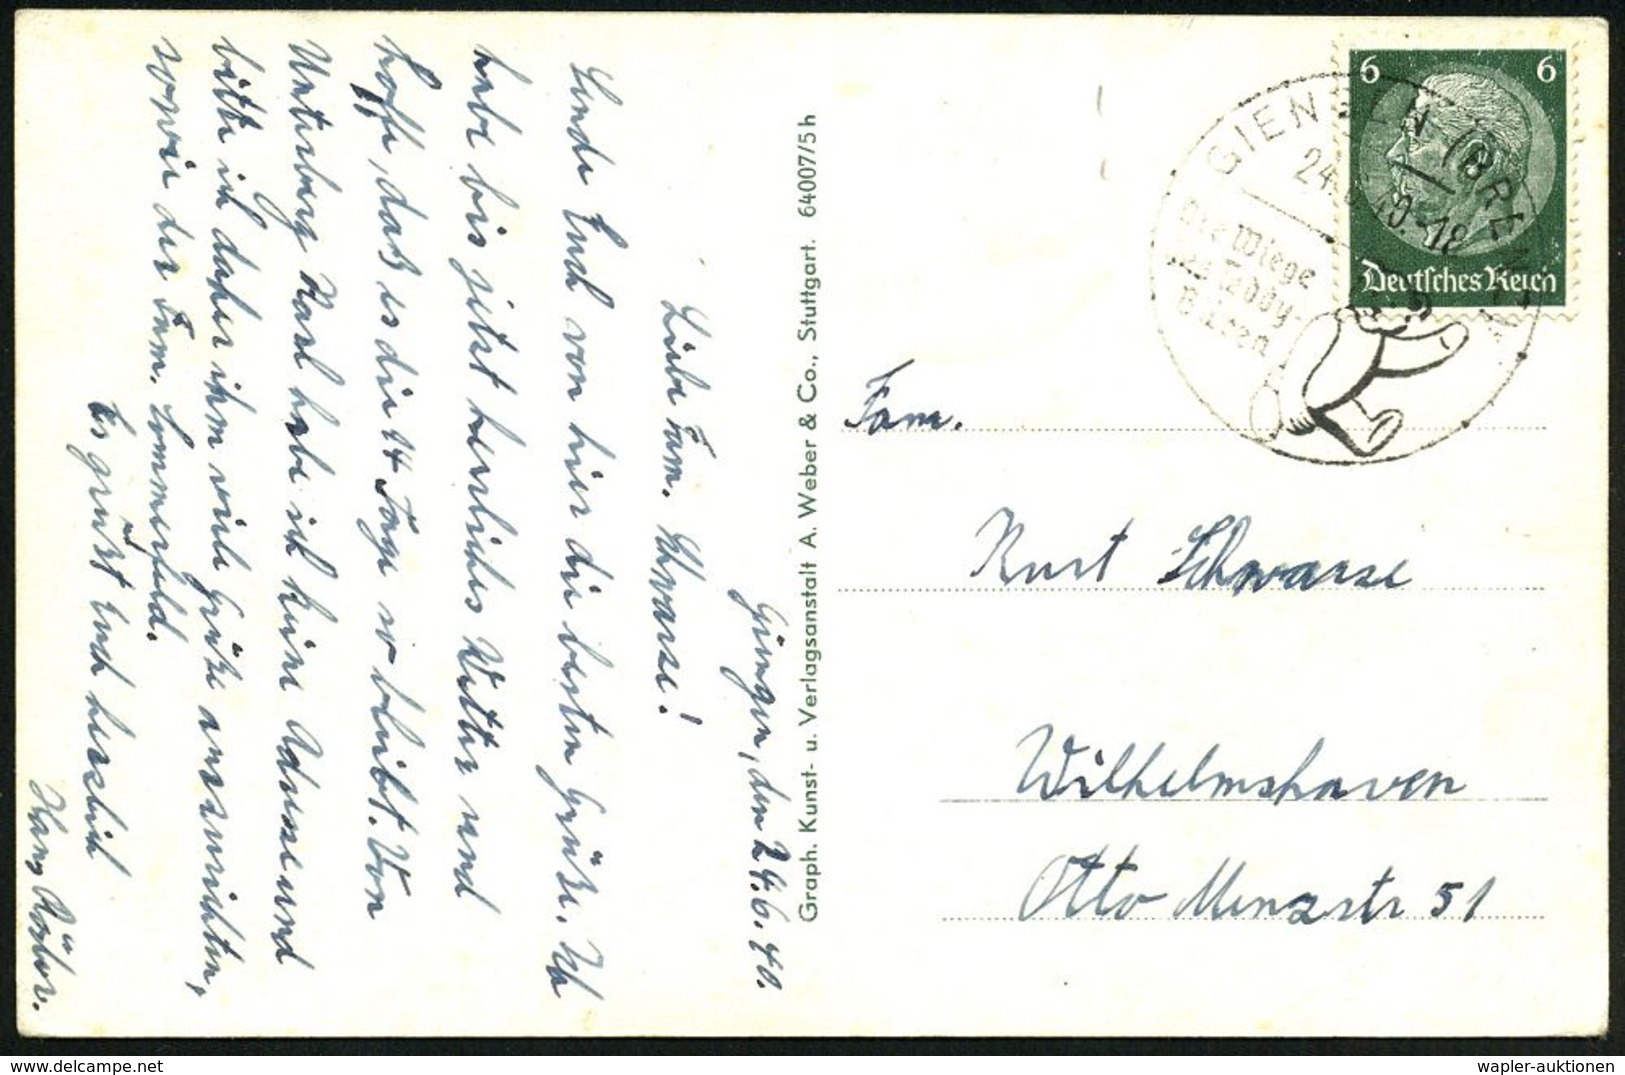 Giengen, den 24.6.40.
Liebe Fam. Schwarze!
Sende Euch von hier die besten Grüße. Ich
habe bis jetzt herrliches Wetter und
hoffe, daß es die 14 Tage so bleibt. Von
Unterberg Karl habe ich keine Adresse und
bitte ich daher ihm viele Grüße auszurichten,
sowie der Fam. Sommerfeld.
Es grüßt Euch herzlich
Graph. Kunst- u. Verlagsanstalt A. Weber & Co., Stuttgart. 64007/5h
6 6
Deutsches Reich
GIENGEN (BRENZ)
24.6.40.-18
Die Wiege
des Teddy-
Bären
Fam.
Kurt Schwarze
Wilhelmshaven
Otto Menzstr 51
wapler-auktionen